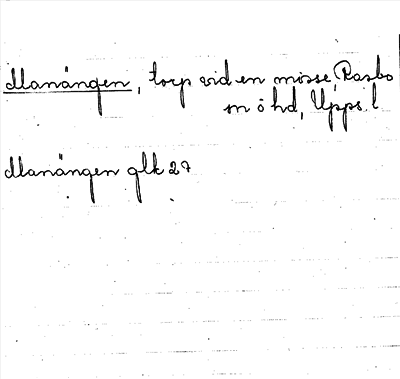 Manängen, torp vid en mosse, Rasbo
sn o hd, Upps. l
Manängen glk 27